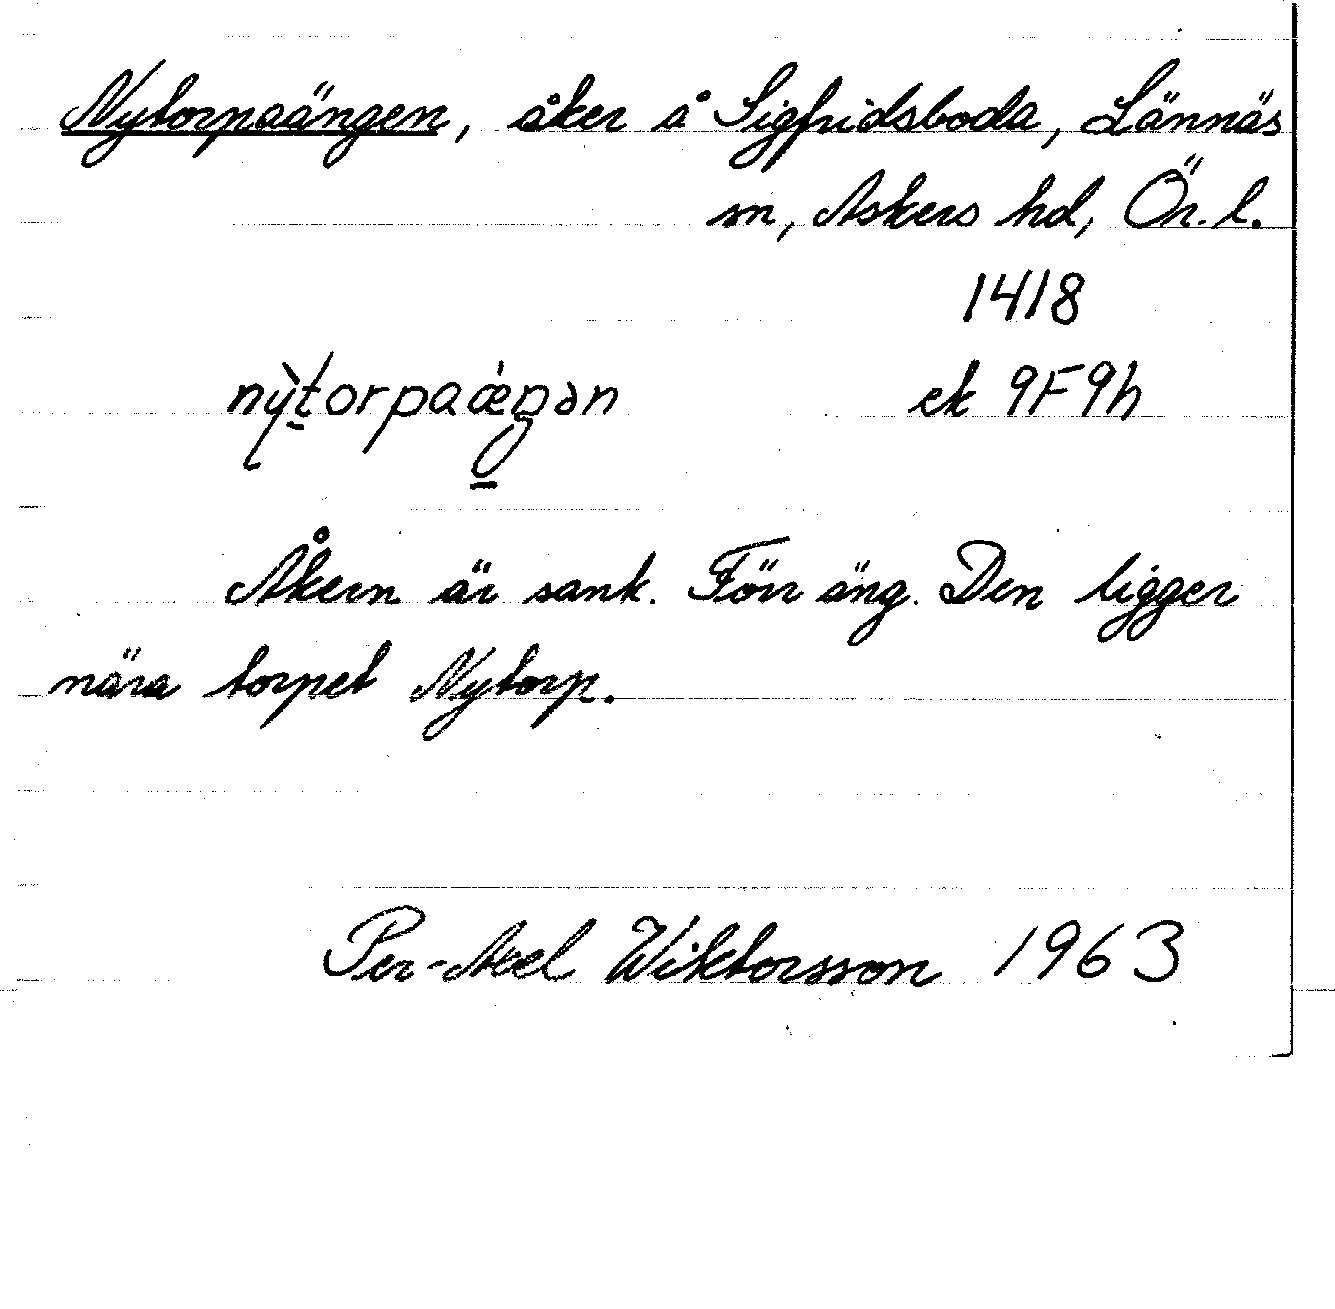 Nytorpaängen, åker å Sigfridsboda, Lännäs
sn, Askers hd, Ör. l.
1418
nỳtorpaǽŋən ek 9F9h
Åkern är sank. Förr äng. Den ligger
nära torpet Nytorp.
Per-Axel Wiktorsson 1963